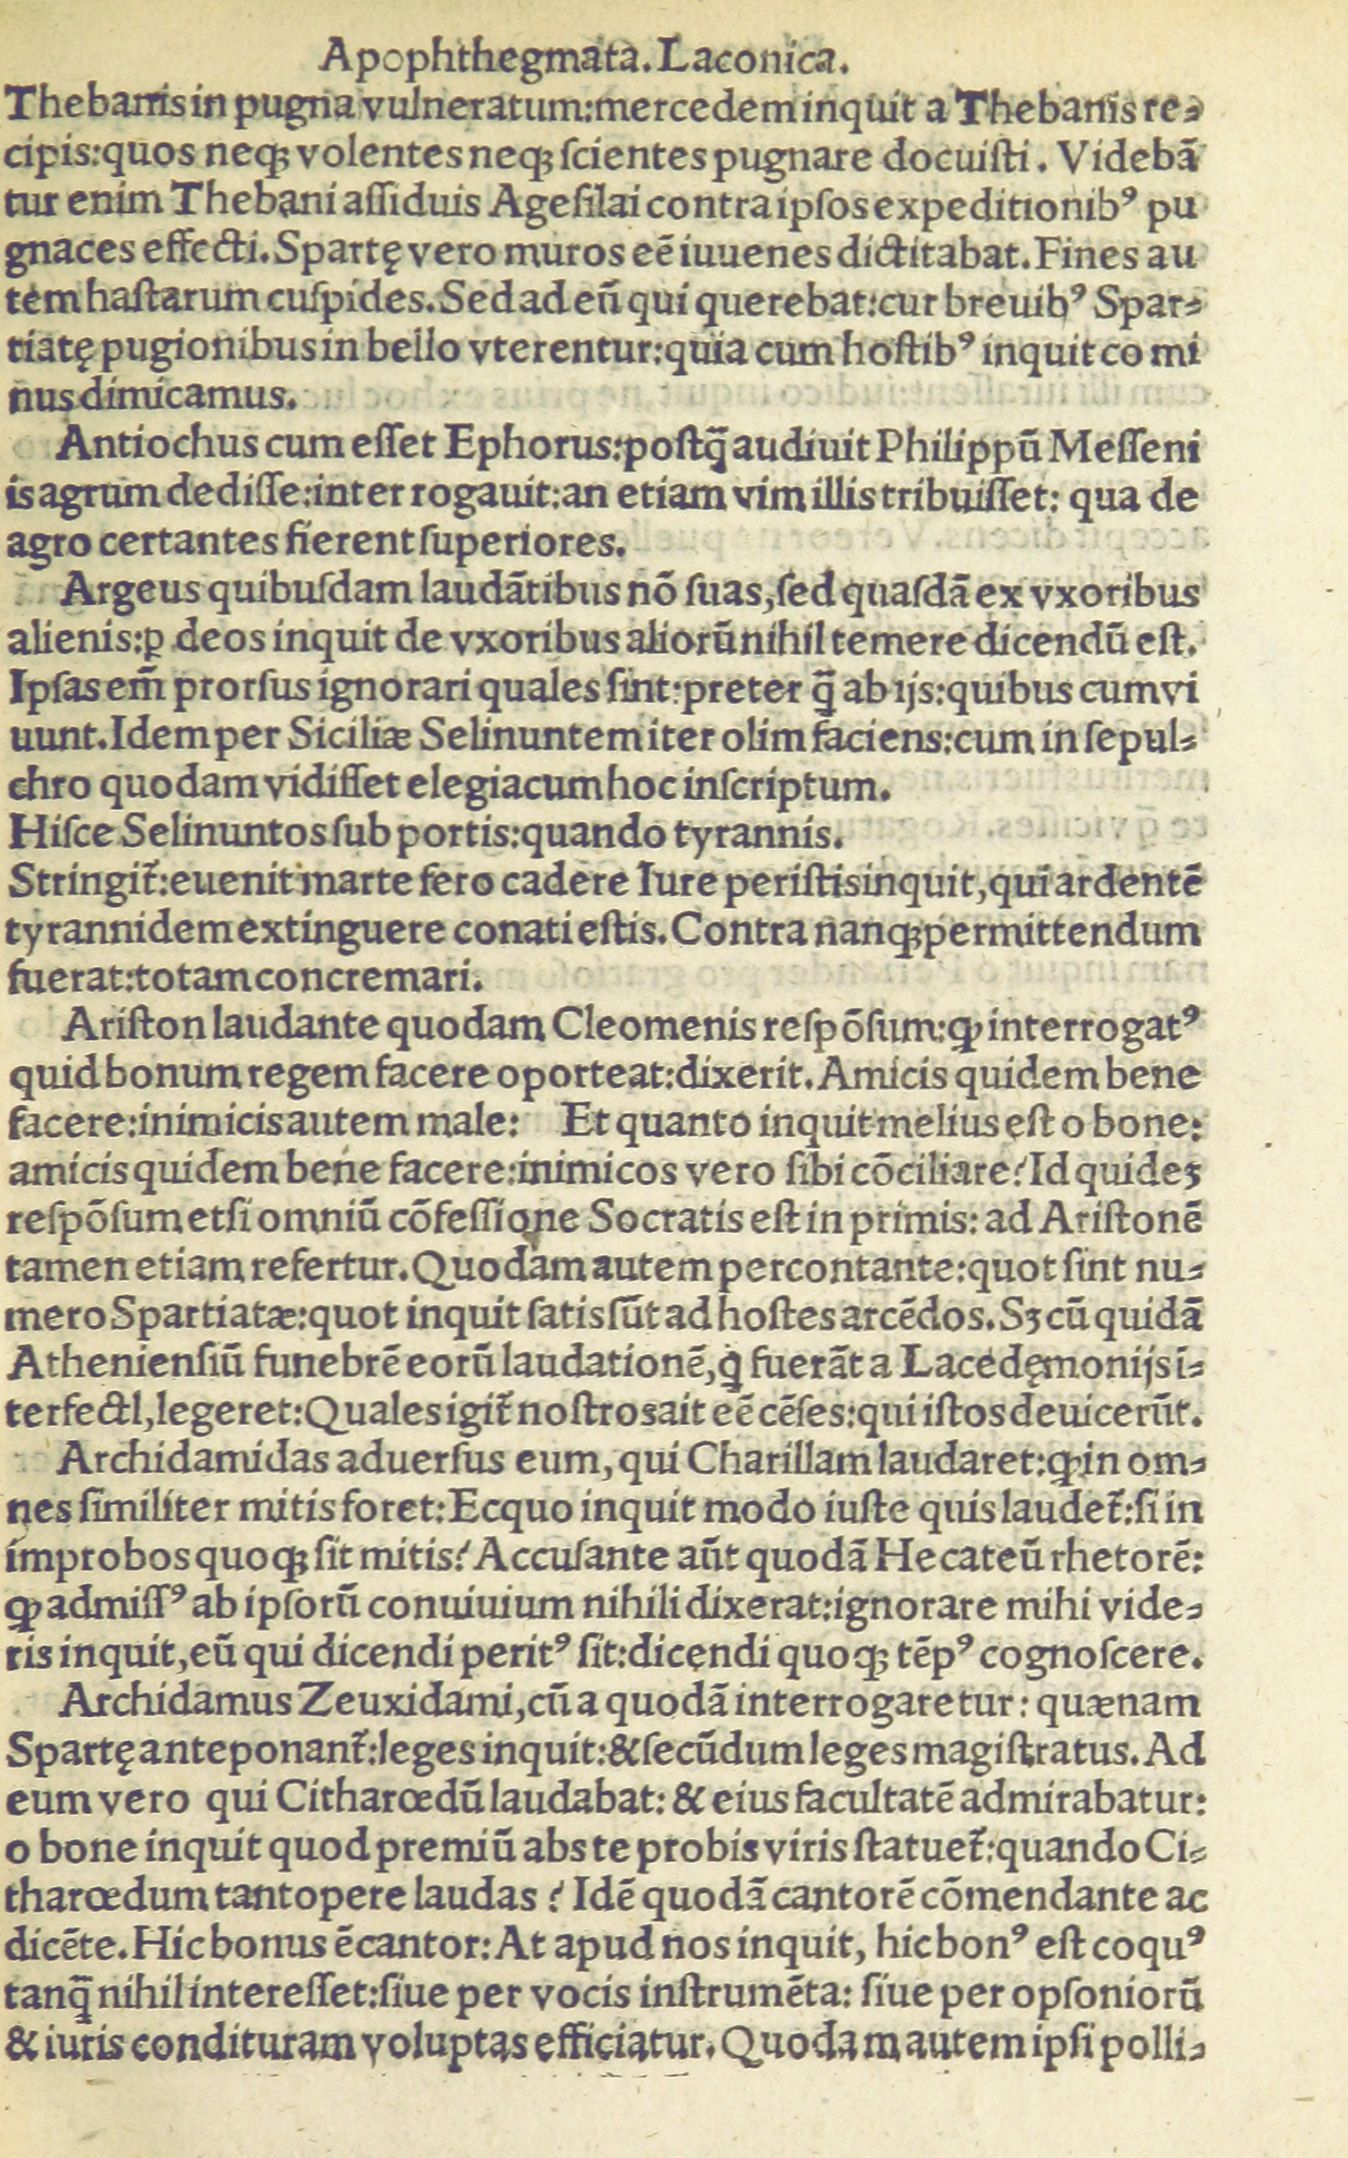 Apophthegmata. Laconica.
Thebanis in pugna vulneratum: mercedem inquit a Thebanis re-
cipis: quos neqꝫ volentes neqꝫ ſcientes pugnare docuiſti. Videbã
tur enim Thebani aſſiduis Ageſilai contra ipſos expeditionibꝰ pu
gnaces effecti. Spartę vero muros eẽ iuuenes dictitabat. Fines au
tem haſtarum cuſpides. Sed ad eũ qui querebat: cur breuibꝰ Spar-
tiatę pugionibus in bello vterentur: quia cum hoſtibꝰ inquit co mi
nus dimicamus.
Antiochus cum eſſet Ephorus: poſtq̃ audiuit Philippũ Meſſeni
is agrum dediſſe: inter rogauit: an etiam vim illis tribuiſſet: qua de
agro certantes fierent ſuperiores.
Argeus quibuſdam laudãtibus nõ ſuas, ſed quaſdã ex vxoribus
alienis: ꝑ deos inquit de vxoribus aliorũ nihil temere dicendũ eſt.
Ipſas em̃ prorſus ignorari quales ſint: preter q̃ ab ijs: quibus cum vi
uunt. Idem per Siciliæ Selinuntem iter olim faciens: cum in ſepul-
chro quodam vidiſſet elegiacum hoc inſcriptum.
Hiſce Selinuntos ſub portis: quando tyrannis.
Stringit̃: euenit marte fero cadere Iure periſtis inquit, qui ardentẽ
tyrannidem extinguere conati eſtis. Contra nanqꝫ permittendum
fuerat: totam concremari.
Ariſton laudante quodam Cleomenis reſpõſum: ꝙ interrogatꝰ
quid bonum regem facere oporteat: dixerit. Amicis quidem bene
facere: inimicis autem male: Et quanto inquit melius eſt o bone:
amicis quidem bene facere: inimicos vero ſibi cõciliare? Id quideꝫ
reſpõſum etſi omniũ cõfeſſione Socratis eſt in primis: ad Ariſtonẽ
tamen etiam refertur. Quodam autem percontante: quot ſint nu-
mero Spartiatæ: quot inquit ſatis ſũt ad hoſtes arcẽdos. Sꝫ cũ quidã
Athenienſiũ funebrẽ eorũ laudationẽ, q̇ fuerãt a Lacedęmonijs ĩ-
terfectl, legeret: Quales igit̃ noſtros ait eẽ cẽſes: qui iſtos deuicerũt.
Archidamidas aduerſus eum, qui Charillam laudaret: ꝙ in om-
nes ſimiliter mitis foret: Ecquo inquit modo iuſte quis laudet̃: ſi in
improbos quoqꝫ ſit mitis? Accuſante aũt quodã Hecateũ rhetorẽ:
ꝙ admiſſꝰ ab ipſorũ conuiuium nihili dixerat: ignorare mihi vide-
ris inquit, eũ qui dicendi peritꝰ ſit: dicendi quoqꝫ tẽpꝰ cognoſcere.
Archidamus Zeuxidami, cũ a quodã interrogaretur: quænam
Spartę anteponant̃: leges inquit: & ſecũdum leges magiſtratus. Ad
eum vero qui Citharœdũ laudabat: & eius facultatẽ admirabatur:
o bone inquit quod premiũ abs te probis viris ſtatuet̃: quando Ci-
tharœdum tantopere laudas? Idẽ quodã cantorẽ cõmendante ac
dicẽte. Hic bonus ẽ cantor: At apud nos inquit, hic bonꝰ eſt coquꝰ
tanq̃ nihil intereſſet: ſiue per vocis inſtrumẽta: ſiue per opſoniorũ
& iuris condituram voluptas efficiatur. Quodam autem ipſi polli-